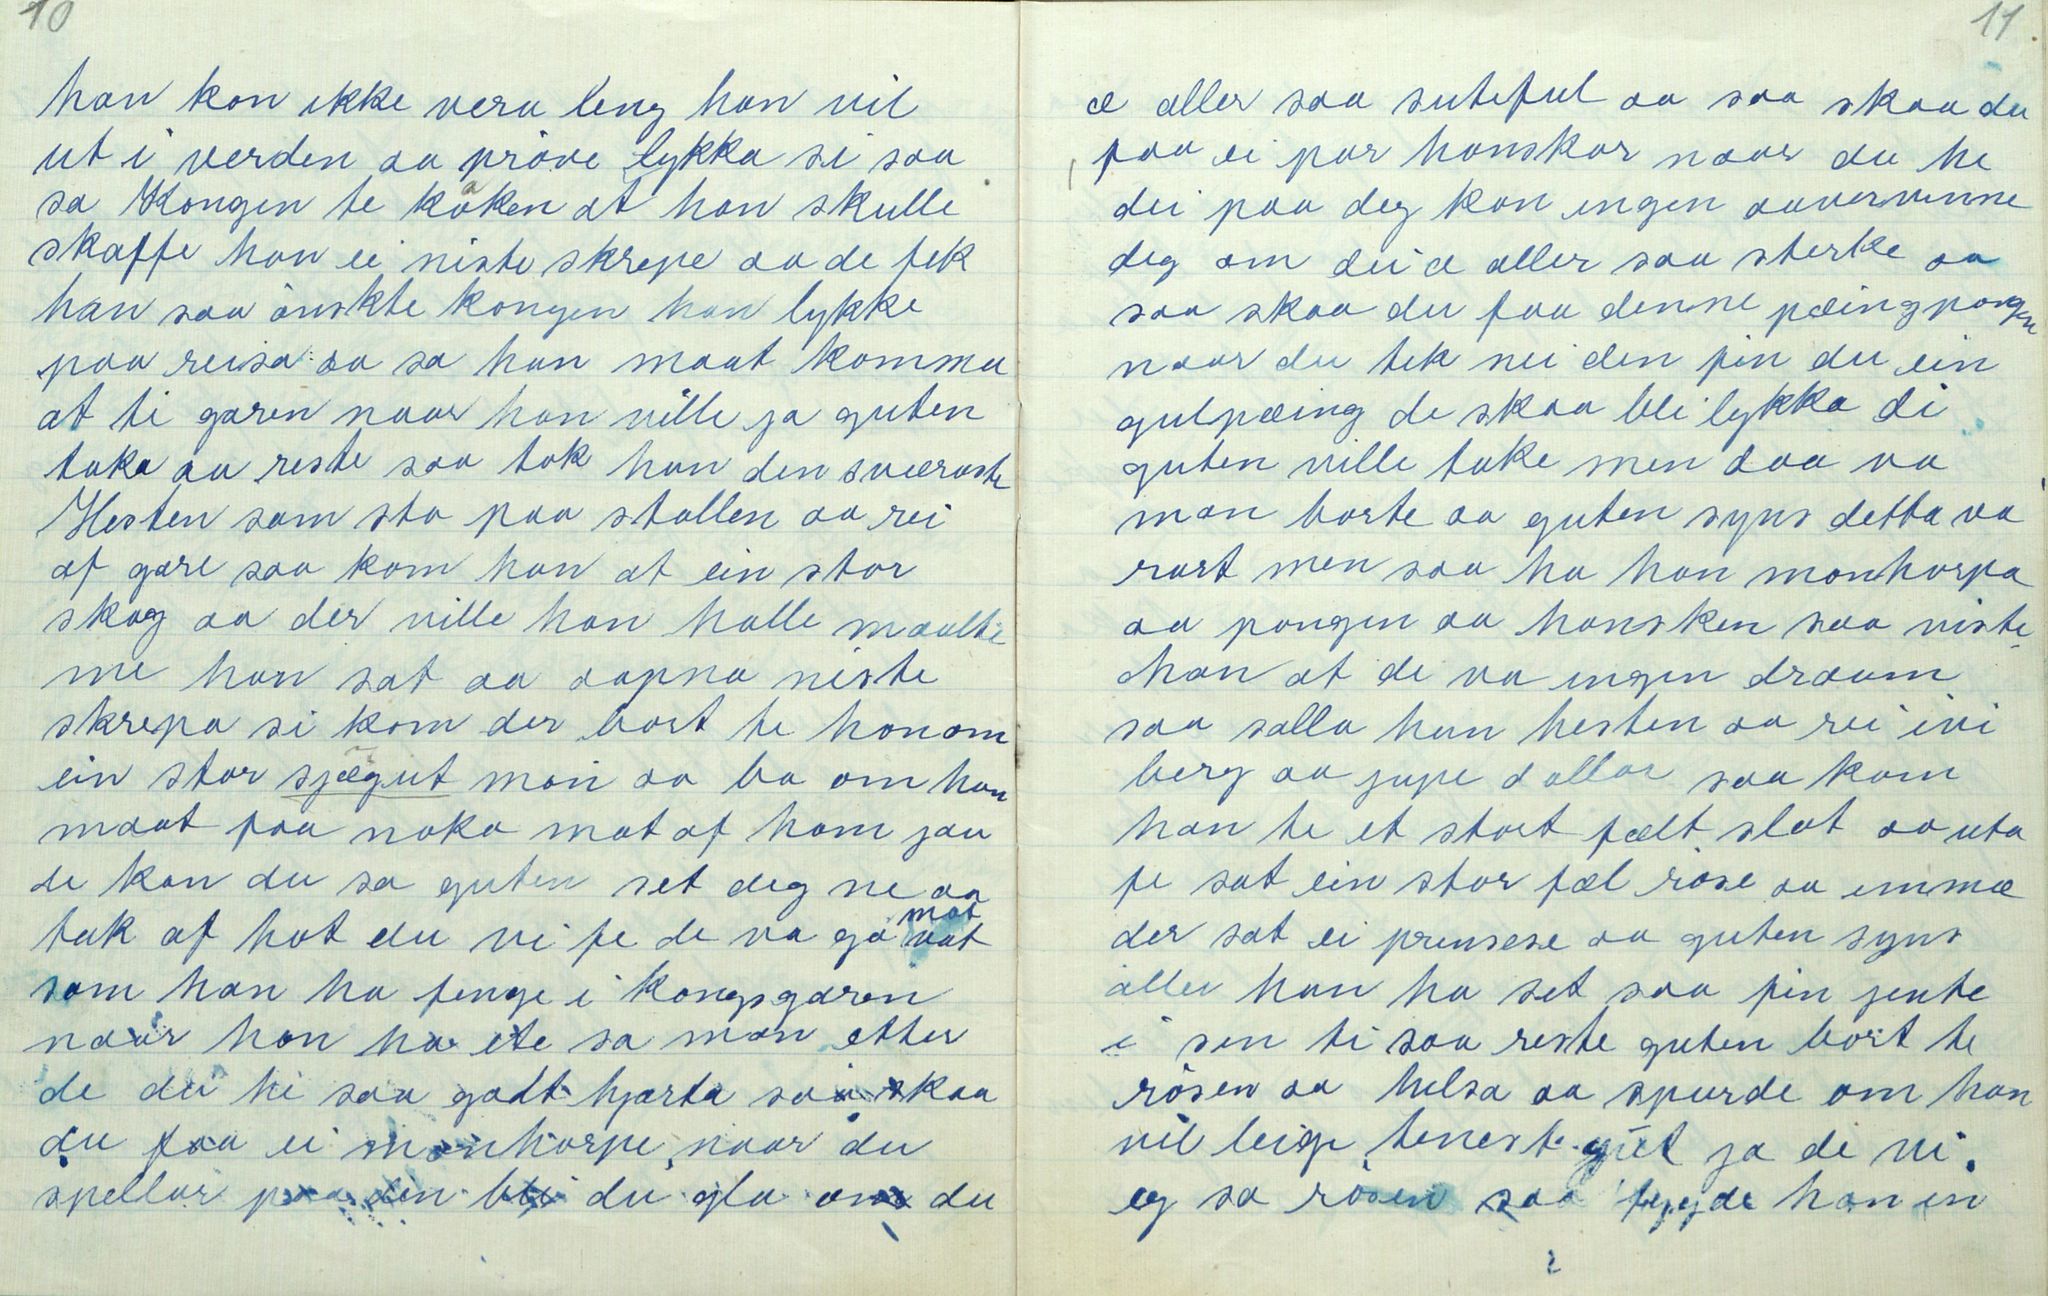 10
han kan ikke vera leng han vil
ut i verden aa pröve lykka si saa
sa Kongen te kåken at han skulle
skaffe han ei niste skrepe aa de fek
han saa önskte kongen han lykke
paa reisa aa sa han maat komma
at ti garen naar han ville ja guten
taka aa reste saa tok han den sværaste
Hesten som sto paa stallen aa rei
af gare saa kom han at ein stor
skog aa der ville han halle maalti
me han sat aa aapna niste
skrepa si kom der bort te honom
ein stor sjægut man aa ba om han
maat faa noka mat af ham jau
de kan du sa guten set deg ne aa
tak af hot du vi fe de va go mat
som han ha fenge i kongsgaren
naar han ha ete sa man etter
de du hi saa godt hjarta saa skaa
du faa ei monharpe naar du
spellar paa den bli du gla om du
11
æ aller saa suteful aa saa skaa du
faa ei par hanskar naar du he
dei paa deg kan ingen aavervinne
deg om dei æ aller saa sterke aa
saa skaa du faa denne pæingpongen
naar du tek nei den fin du ein
gulpæing de skaa bli lykka di
guten ville take men daa va
man borte aa guten syns detta va
rart men saa ha han monharpa
aa pongen aa hansken saa viste
han at de va ingen draum
saa salla han hesten aa rei ivi
berg aa jupe dallar saa kom
han te et stort fælt slot aa uta
fe sat ein stor fæl rise aa imma
der sat ei prensese aa guten syns
aller han ha set saa fin jente
i sin ti saa reste guten bort te
risen aa helsa aa spurde om han
vil leige tenestegut ja de vi
eg sa risen saa fygde han in